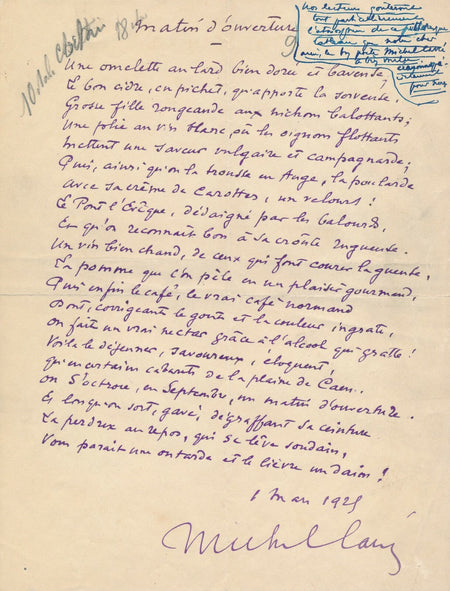 matin d'ouverture
Nos lecteurs goûteront
tout particulièrement
l'atmosphère de ce pittoresque
tableau que notre cher
ami, le bon poète Michel Carré
a bien voulu
pour nous
Une omelette au lard bien dorée et baveuse,
Le bon cidre, en pichet, qu'apporte la servante,
Grosse fille rougeaude aux nichons balottants ;
Une folie au vin blanc, où les oignons flottants
Mettent une saveur vulgaire et campagnarde ;
Puis, ainsi qu'on la trousse en Auge, la poularde
Avec sa crème de carottes, un velours !
Le Pont l'Evêque, dédaigné par les balourds,
Et qu'on reconnait bon à sa croûte rugueuse.
Un vin bien chaud, de ceux qui font courir la gueuse,
La pomme que l'on pèle en un plaisir gourmand,
Puis enfin le café, le vrai café normand
Dont, corrigeant le goût et la couleur ingrate,
On fait un vrai nectar grâce à l'alcool qui gratte !
Voilà le déjeuner, savoureux, éloquent,
Qu'en certains cabarets de la plaine de Caen
On s'octroie, en Septembre, un matin d'ouverture.
Et lorsqu'on sort, gavé, dégraffant sa ceinture
La perdrix au repos, qui se lève soudain,
Vous parait une outarde et le lièvre un daim !
1 Mars 1925
Michel Carré